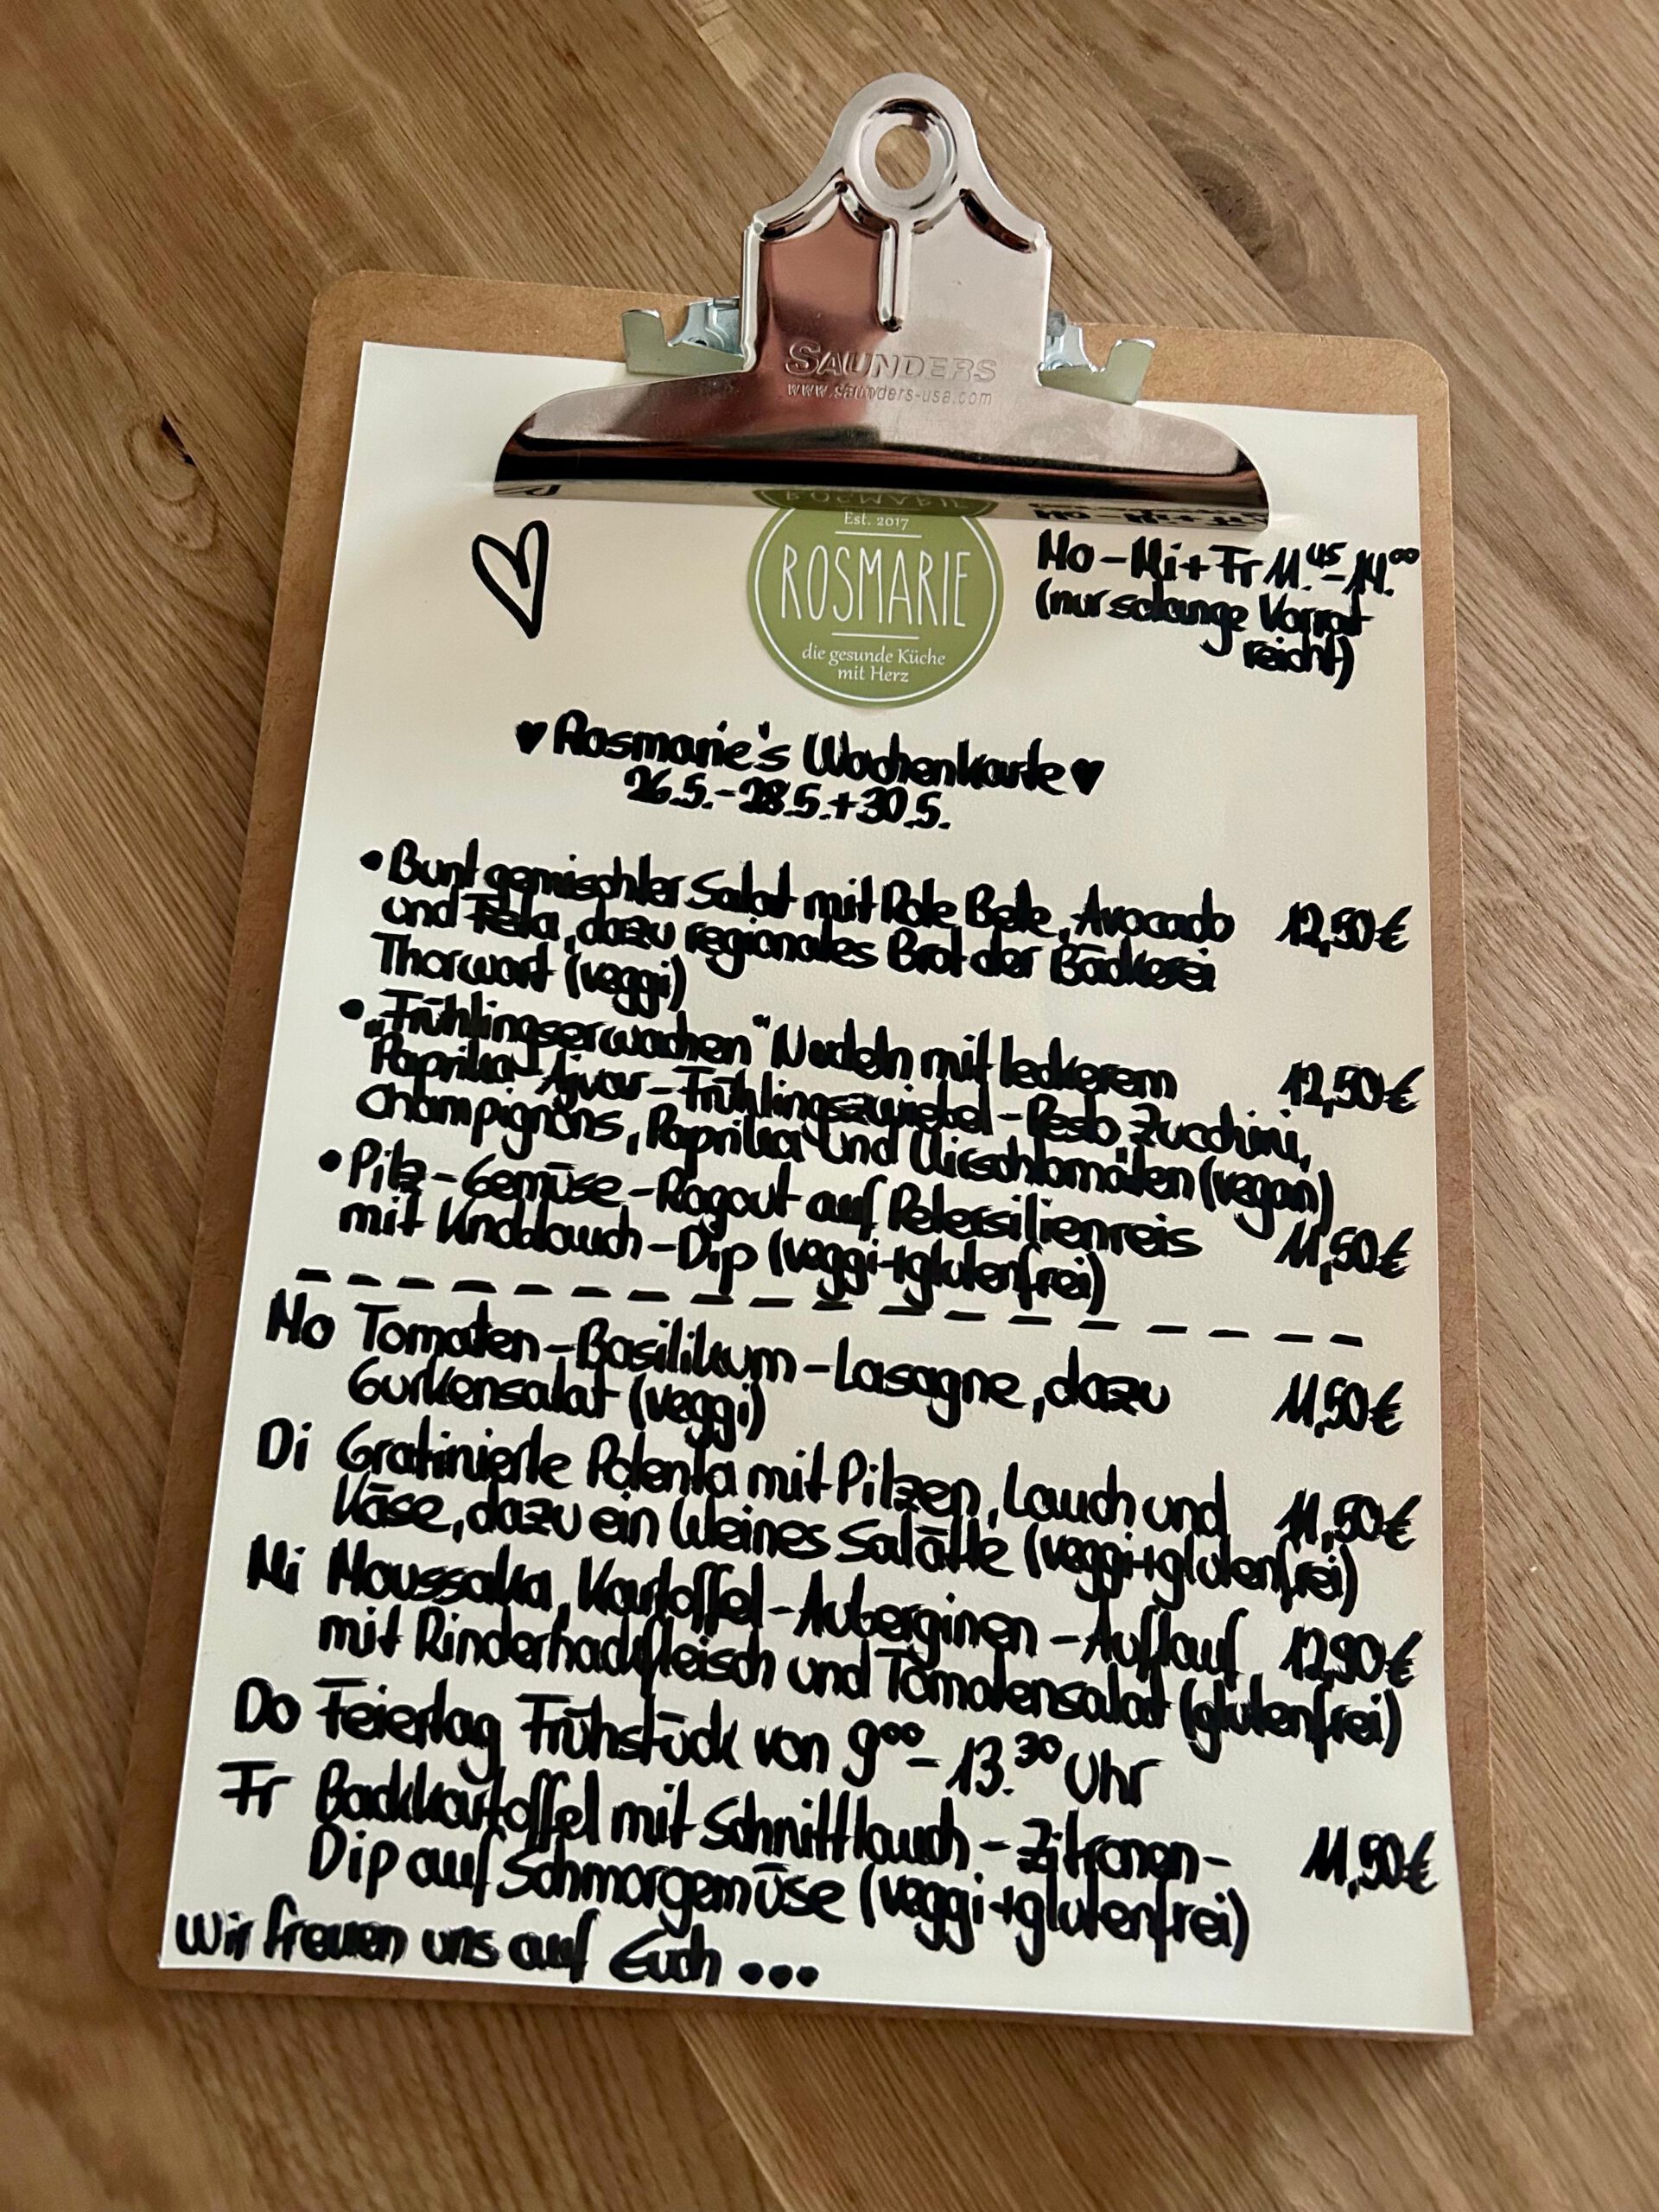 SAUNDERS
www.saunders-usa.com
Est. 2017
ROSMARIE
die gesunde Küche
mit Herz
Mo-Mi+Fr 11.45-14.00
(nur solange Vorrat
reicht)
♥ Rosmarie's Wochenkarte ♥
26.5.-28.5.+30.5.
• Bunt gemischter Salat mit Rote Bete, Avocado 12,50€
und Feta, dazu regionales Brot der Bäckerei
Thorwart (veggi)
• „Frühlingserwachen“ Nudeln mit leckerem 12,50€
Paprika-Ajvar-Frühlingszwiebel-Pesto, Zucchini,
Champignons, Paprika und Kirschtomaten (vegan)
• Pilz-Gemüse-Ragout auf Petersilienreis 11,50€
mit Knoblauch-Dip (veggi+glutenfrei)
Mo Tomaten-Basilikum-Lasagne, dazu 11,50€
Gurkensalat (veggi)
Di Gratinierte Polenta mit Pilzen, Lauch und 11,50€
Käse, dazu ein kleines Salätle (veggi+glutenfrei)
Mi Moussaka, Kartoffel-Auberginen-Auflauf 12,90€
mit Rinderhackfleisch und Tomatensalat (glutenfrei)
Do Feiertag Frühstück von 9.00-13.30 Uhr
Fr Backkartoffel mit Schnittlauch-Zitronen- 11,50€
Dip auf Schmorgemüse (veggi+glutenfrei)
Wir freuen uns auf Euch...